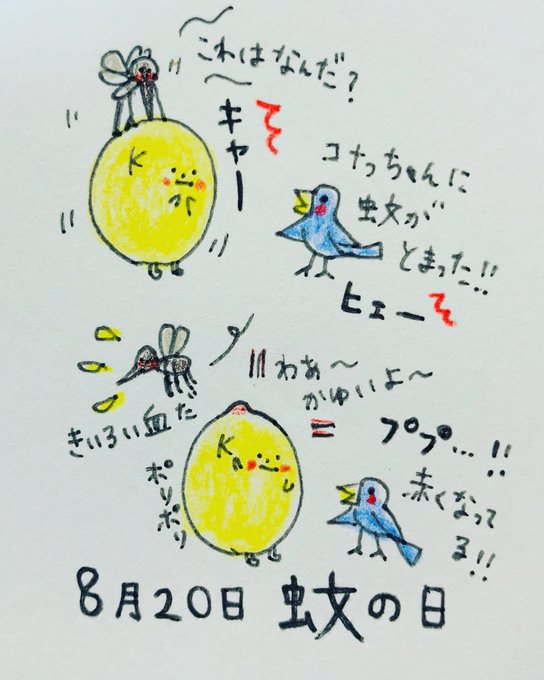 これはなんだ？
キャー
K
コナっちゃんに
蚊が
とまった!!
ヒェー
きいろい血だ
わぁ〜
かゆいよ〜
K
ポリポリ
ププ…!!
赤くなって
る!!
8月20日 蚊の日